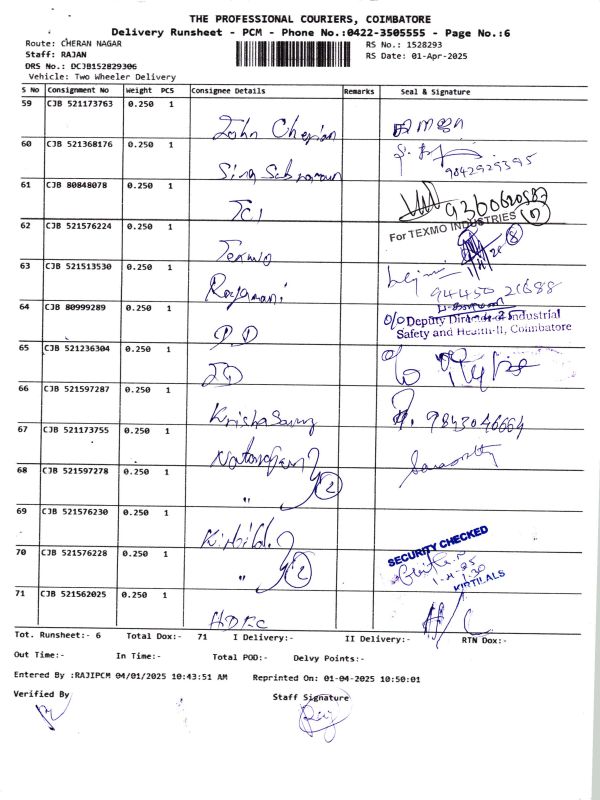 THE PROFESSIONAL COURIERS, COIMBATORE
Delivery Runsheet - PCM - Phone No.:0422-3505555 - Page No.:6
Route: CHERAN NAGAR
RS No.: 1528293
Staff: RAJAN
RS Date: 01-Apr-2025
DRS No.: DCJB152829306
Vehicle: Two Wheeler Delivery
S No Consignment No Weight PCS Consignee Details Remarks Seal & Signature
59 CJB 521173763 0.250 1
John Cherian
60 CJB 521368176 0.250 1
9042929395
61 CJB 80848078 0.250 1
TCI
For TEXMO INDUSTRIES
62 CJB 521576224 0.250 1
Texmo
8
63 CJB 521513530 0.250 1
Rajamani
94450 21688
64 CJB 80999289 0.250 1
DD
O/o Deputy Director of Industrial
Safety and Health-II, Coimbatore
65 CJB 521236304 0.250 1
JD
66 CJB 521597287 0.250 1
9843046664
67 CJB 521173755 0.250 1
68 CJB 521597278 0.250 1
" 2
69 CJB 521576230 0.250 1
70 CJB 521576228 0.250 1
" 2
SECURITY CHECKED
1-4-25
KIRTILALS
71 CJB 521562025 0.250 1
HDFC
Tot. Runsheet:- 6 Total Dox:- 71 I Delivery:- II Delivery:- RTN Dox:-
Out Time:- In Time:- Total POD:- Delvy Points:-
Entered By :RAJIPCM 04/01/2025 10:43:51 AM Reprinted On: 01-04-2025 10:50:01
Verified By Staff Signature